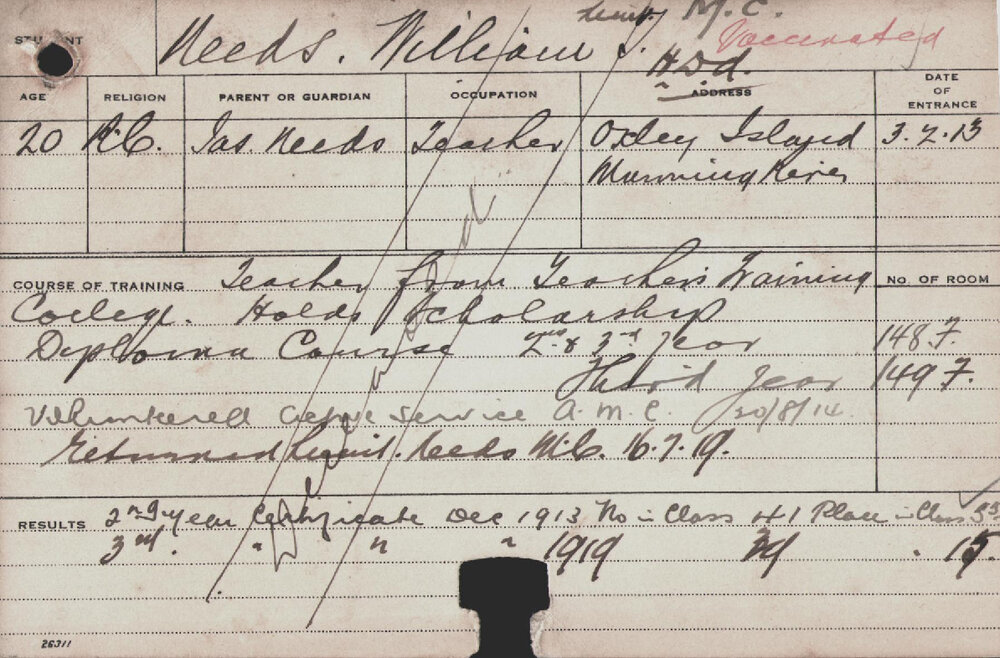 Lieut. M.C.
STUDENT Needs. William J. Vaccinated
H.D.d.
AGE RELIGION PARENT OR GUARDIAN OCCUPATION ADDRESS DATE OF ENTRANCE
20 R.C. Jas Needs Teacher Oxley Island 3.2.13
Manning River
COURSE OF TRAINING Teacher from Teachers Training No. OF ROOM
College. Holds Scholarship
Diploma Course 2nd & 3rd Year 148.7.
Third Year 149 7.
Volunteered Active Service A.M.C. 20/8/14.
Returned Lieut. Needs M.C. 16.7.19.
RESULTS 2nd Year Certificate Dec 1913 No in Class 41 Place in Class
3rd. " " " 1919 . 15.
26311